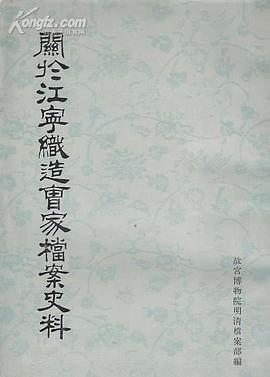 Kongfz.com
孔夫子旧书网
關於江寧織造曹家檔案史料
故宮博物院明清檔案部編